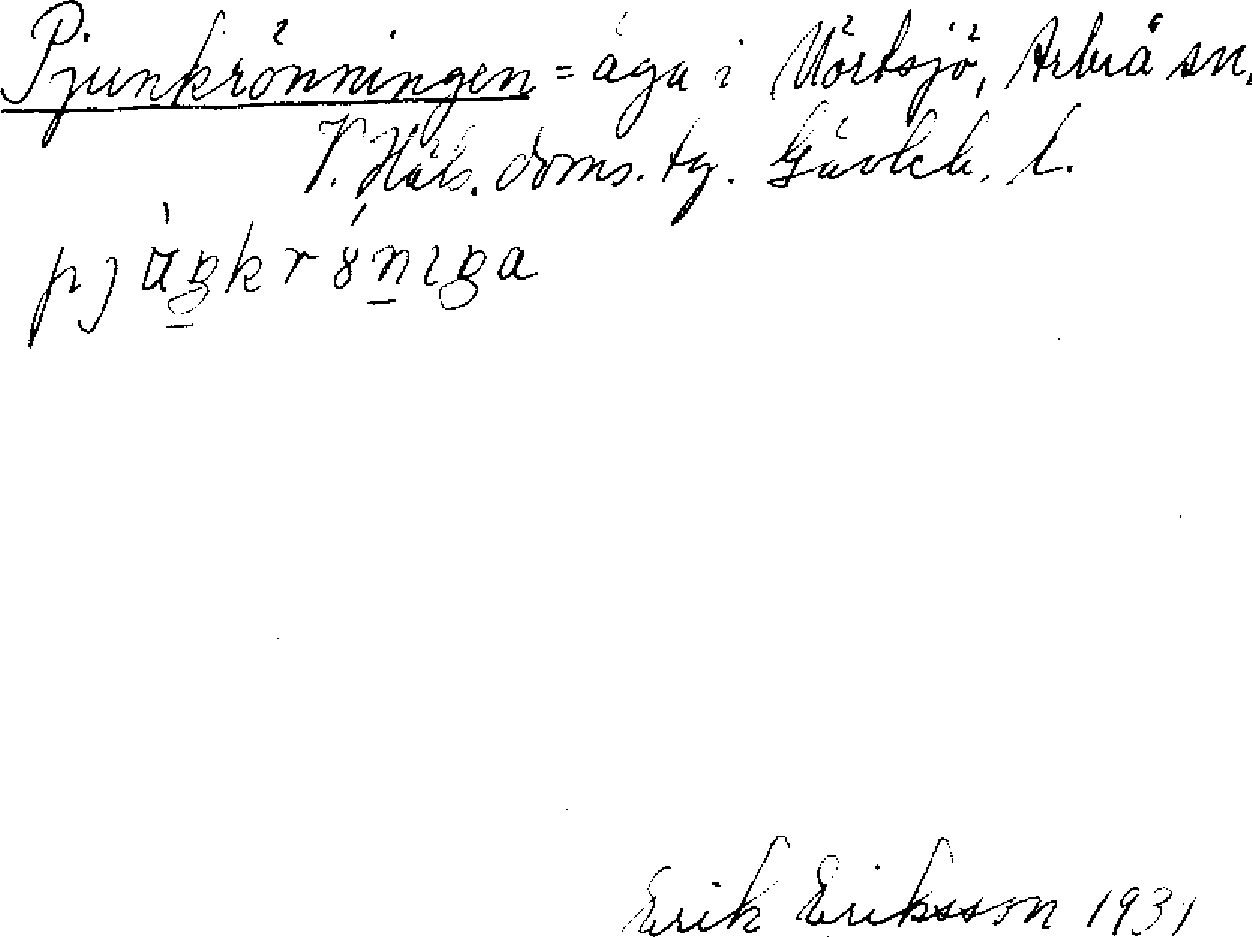 Pjunkrönningen = äga i Mörtsjö, Arbrå sn.
V. Häls. doms. tg. Gävleb. l.
Erik Eriksson 1931